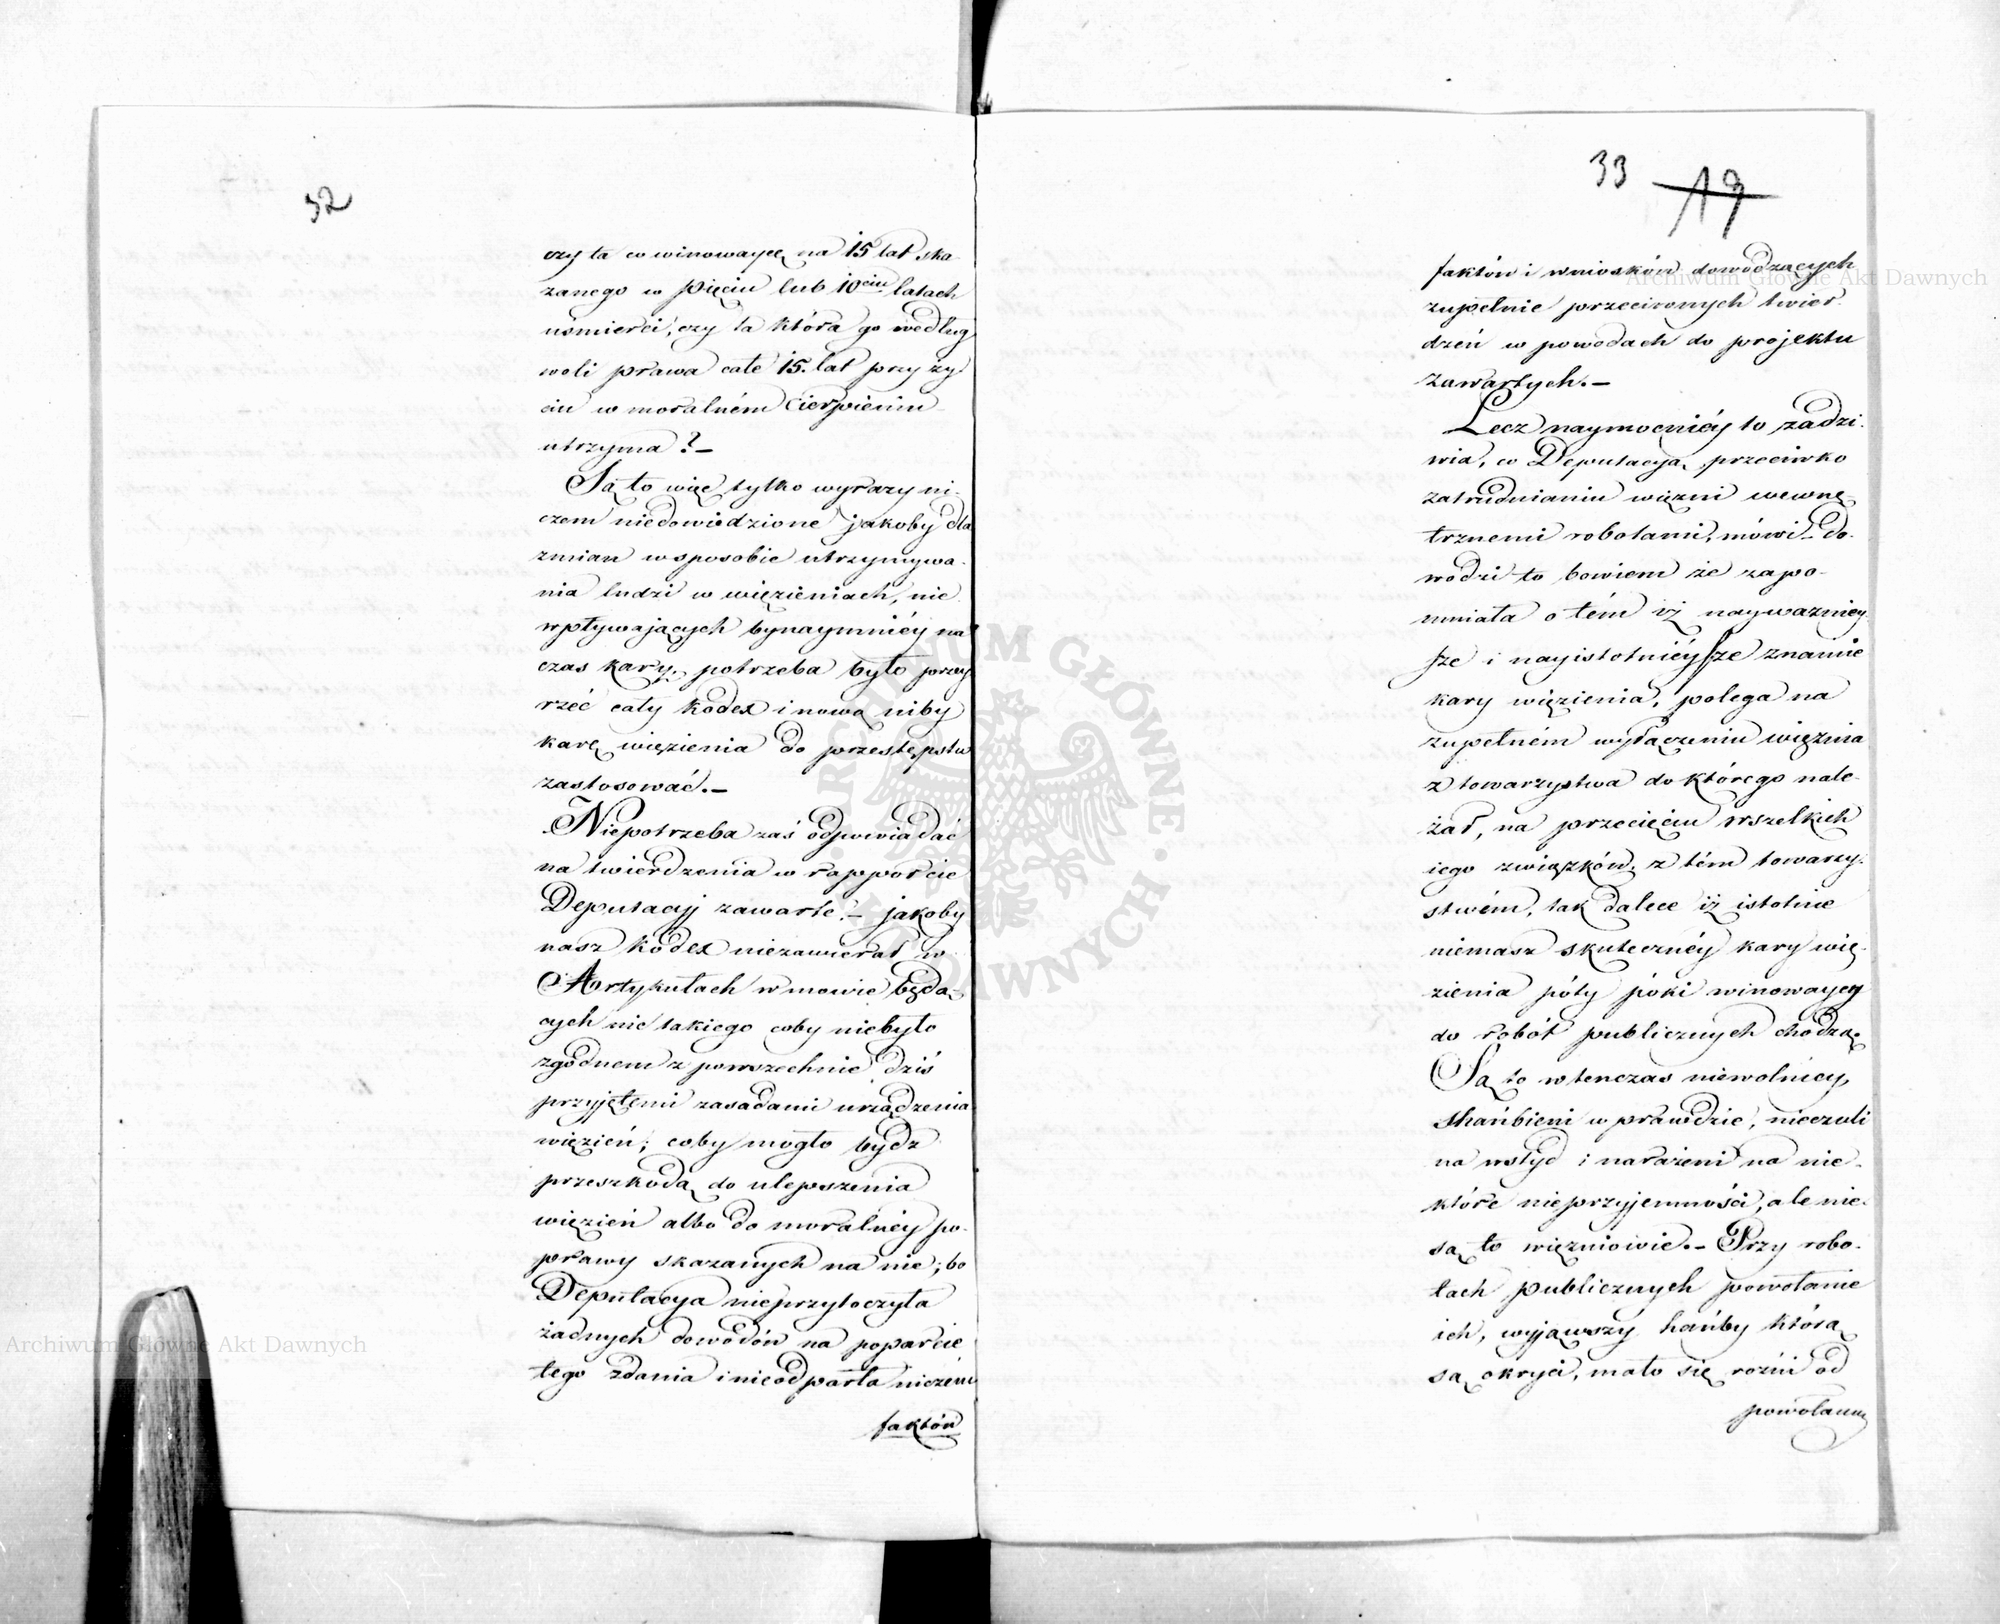 32
czy ta co winowaycę na 15 lat ska-
zanego w pięciu lub 10ciu latach
uśmierci, czy ta która go według
woli prawa całe 15. lat przy ży
ciu w moralném cierpieniu
utrzyma?—
Są to więc tylko wyrazy ni-
czem niedowiedzione jakoby dla
zmian w sposobie utrzymywa-
nia ludzi w więzieniach, nie
wpływających bynaymniéy na
czas kary, potrzeba było przey
rzéć cały kodex i nową niby
karę więzienia do przestępstw
zastosować.—
Niepotrzeba zaś odpowiadać
na twierdzenia w rapporcie
Deputacyj zawarte.— jakoby
nasz kodex niezawierał w
Artykułach w mowie będą-
cych nic takiego coby niebyło
zgodnem z powszechnie dziś
przyjętemi zasadami urządzenia
więzień; coby mogło bydź
przeszkodą do ulepszenia
więzień albo do moralnéy po-
prawy skazanych na nie; bo
Deputacya nieprzytoczyła
żadnych dowodów na poparcie
tego zdania i nieodparła niczém
faktów
33 19
faktów i wniosków dowodzących
zupełnie przeciwnych twier-
dzeń w powodach do projektu
zawartych.—
Lecz naymocniéy to zadzi-
wia, co Deputacya przeciwko
zatrudnianiu więźni wewnę-
trznemi robotami, mówi. do-
wodzi to bowiem że zapo-
mniała o tém iż nayważniéy
sze i nayistotniéysze znamie
kary więzienia, polega na
zupełném wyłączeniu więźnia
z towarzystwa do którego nale-
żał, na przecięciu wszelkich
iego związków z tém towarzy-
stwém, tak dalece iż istotnie
niemasz skutecznéy kary wię-
zienia póty póki winowaycy
do robót publicznych chodzą
Są to wtenczas niewolnicy,
shańbieni w prawdzie, nieczuli
na wstyd i narażeni na nie-
które nieprzyjemności, ale nie-
są to więźniowie.— Przy robo-
tach publicznych powołanie
ich, wyjąwszy hańby którą
są okryci, mało się różni od
powołania
Archiwum Główne Akt Dawnych
Archiwum Główne Akt Dawnych
ARCHIWUM GŁÓWNE AKT DAWNYCH